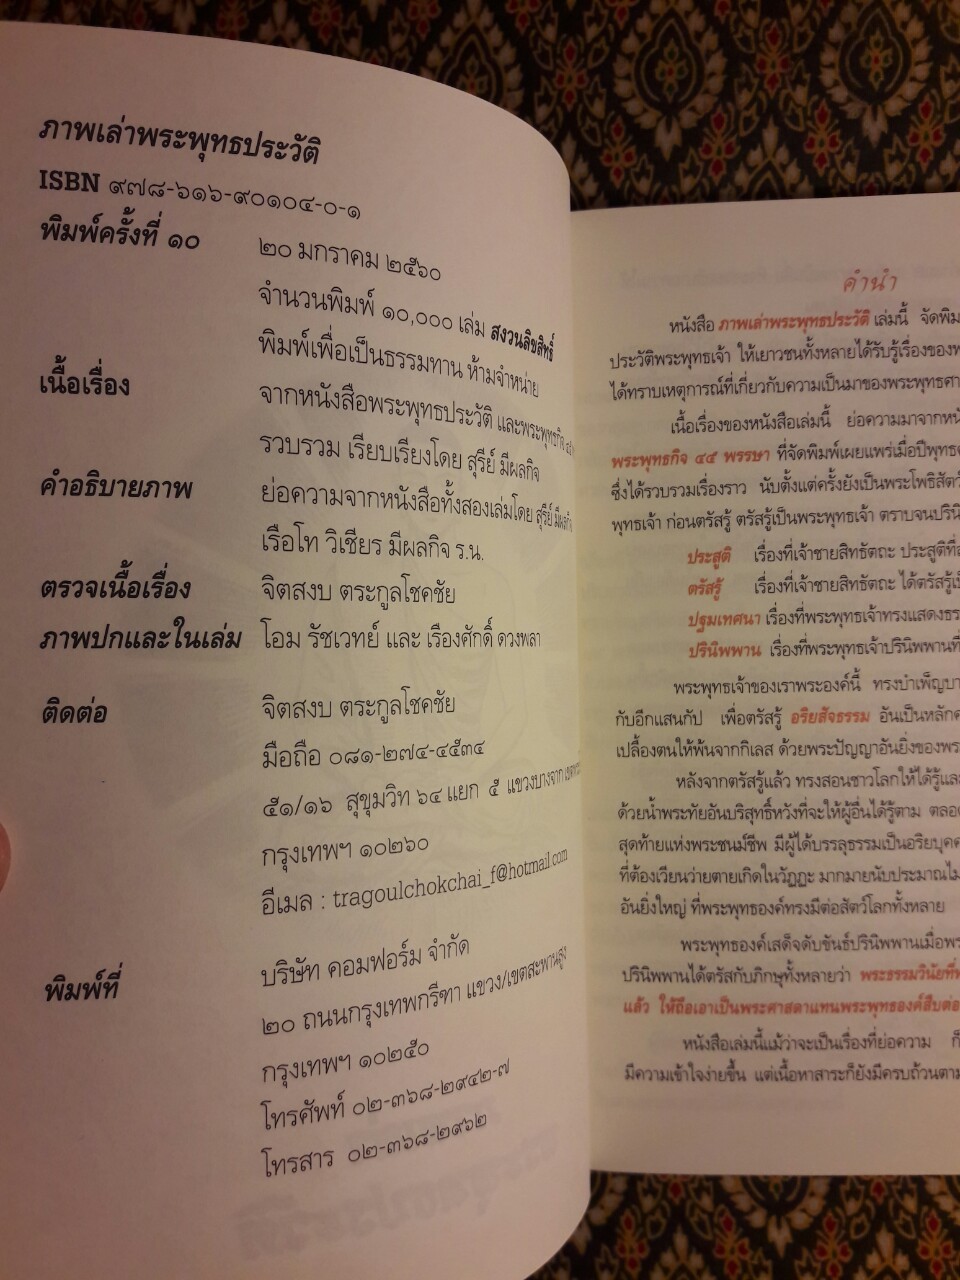 ภาพเล่าพระพุทธประวัติ
ISBN ๙๗๘-๖๑๖-๙๐๑๐๔-๐-๑
พิมพ์ครั้งที่ ๑๐ ๒๐ มกราคม ๒๕๖๐
จำนวนพิมพ์ ๑๐,๐๐๐ เล่ม สงวนลิขสิทธิ์
พิมพ์เพื่อเป็นธรรมทาน ห้ามจำหน่าย
เนื้อเรื่อง จากหนังสือพระพุทธประวัติ และพระพุทธกิจ
รวบรวม เรียบเรียงโดย สุรีย์ มีผลกิจ
คำอธิบายภาพ ย่อความจากหนังสือทั้งสองเล่มโดย สุรีย์ มีผลกิจ
เรือโท วิเชียร มีผลกิจ ร.น.
ตรวจเนื้อเรื่อง จิตสงบ ตระกูลโชคชัย
ภาพปกและในเล่ม โอม รัชเวทย์ และ เรืองศักดิ์ ดวงพลา
ติดต่อ จิตสงบ ตระกูลโชคชัย
มือถือ ๐๘๑-๒๗๔-๔๕๓๔
๕๑/๑๖ สุขุมวิท ๖๔ แยก ๕ แขวงบางจาก
กรุงเทพฯ ๑๐๒๖๐
อีเมล : tragoulchokchai_f@hotmail.com
พิมพ์ที่ บริษัท คอมฟอร์ม จำกัด
๒๐ ถนนกรุงเทพกรีฑา แขวง/เขตสะพานสูง
กรุงเทพฯ ๑๐๒๕๐
โทรศัพท์ ๐๒-๓๖๘-๒๙๔๒-๗
โทรสาร ๐๒-๓๖๘-๒๙๖๒
คำนำ
หนังสือ ภาพเล่าพระพุทธประวัติ เล่มนี้ จัดพิม
ประวัติพระพุทธเจ้า ให้เยาวชนทั้งหลายได้รับรู้เรื่องของพ
ได้ทราบเหตุการณ์ที่เกี่ยวกับความเป็นมาของพระพุทธศา
เนื้อเรื่องของหนังสือเล่มนี้ ย่อความมาจากหนั
พระพุทธกิจ ๔๕ พรรษา ที่จัดพิมพ์เผยแพร่เมื่อปีพุทธ
ซึ่งได้รวบรวมเรื่องราว นับตั้งแต่ครั้งยังเป็นพระโพธิสัตว์
พุทธเจ้า ก่อนตรัสรู้ ตรัสรู้เป็นพระพุทธเจ้า ตราบจนปริน
ประสูติ เรื่องที่เจ้าชายสิทธัตถะ ประสูติที่
ตรัสรู้ เรื่องที่เจ้าชายสิทธัตถะ ได้ตรัสรู้เ
ปฐมเทศนา เรื่องที่พระพุทธเจ้าทรงแสดงธร
ปรินิพพาน เรื่องที่พระพุทธเจ้าปรินิพพานที่
พระพุทธเจ้าของเราพระองค์นี้ ทรงบำเพ็ญบา
กับอีกแสนกัป เพื่อตรัสรู้ อริยสัจธรรม อันเป็นหลัก
เปลื้องตนให้พ้นจากกิเลส ด้วยพระปัญญาอันยิ่งของพระ
หลังจากตรัสรู้แล้ว ทรงสอนชาวโลกให้ได้รู้และ
ด้วยน้ำพระทัยอันบริสุทธิ์หวังที่จะให้ผู้อื่นได้รู้ตาม ตลอด
สุดท้ายแห่งพระชนม์ชีพ มีผู้ได้บรรลุธรรมเป็นอริยบุคค
ที่ต้องเวียนว่ายตายเกิดในวัฏฏะ มากมายนับประมาณไม
อันยิ่งใหญ่ ที่พระพุทธองค์ทรงมีต่อสัตว์โลกทั้งหลาย
พระพุทธองค์เสด็จดับขันธ์ปรินิพพานเมื่อพร
ปรินิพพานได้ตรัสกับภิกษุทั้งหลายว่า พระธรรมวินัยที่
แล้ว ให้ถือเอาเป็นพระศาสดาแทนพระพุทธองค์สืบต่อ
หนังสือเล่มนี้แม้ว่าจะเป็นเรื่องที่ย่อความ ก็
มีความเข้าใจง่ายขึ้น แต่เนื้อหาสาระก็ยังมีครบถ้วนตาม